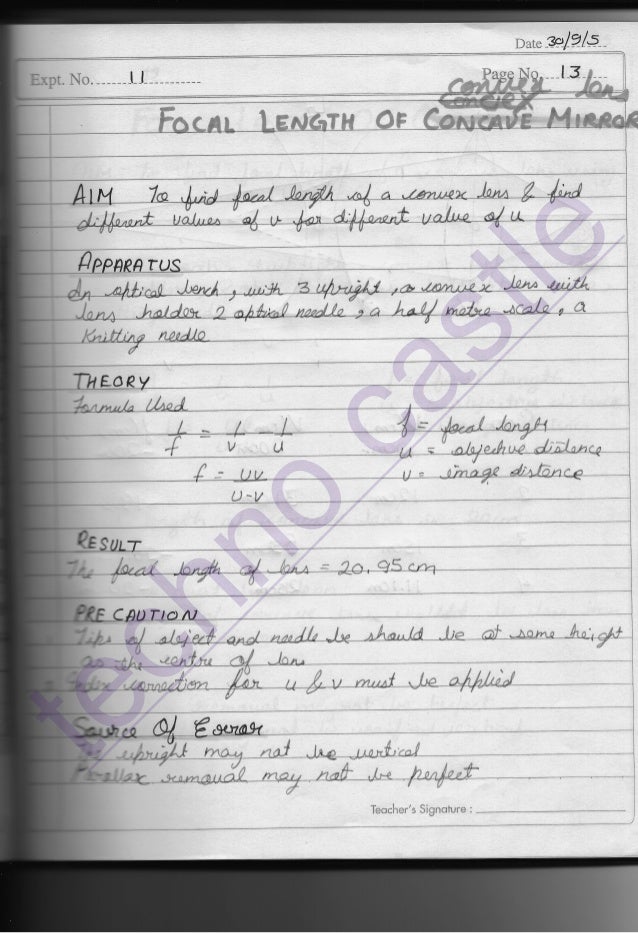 Date 30/9/5
Expt. No. 11 Page No. 13
convex lens
convex
FOCAL LENGTH OF CONCAVE MIRROR
AIM To find focal length of a convex lens & find
different values of v for different value of u
APPARATUS
An optical bench, with 3 upright, a convex lens with
lens holder 2 optical needle, a half metre scale, a
Knitting needle
THEORY
Formula Used
1/f = 1/v - 1/u f = focal length
u = objective distance
f = uv/u-v v = image distance
RESULT
The focal length of lens = 20.95 cm
PRECAUTION
Tips of object and needle be should lie at same height
as the centre of lens
Index correction for u & v must be applied
Source Of Error
The upright may not be vertical
Parallax removal may not be perfect
Teacher's Signature :
techno castle